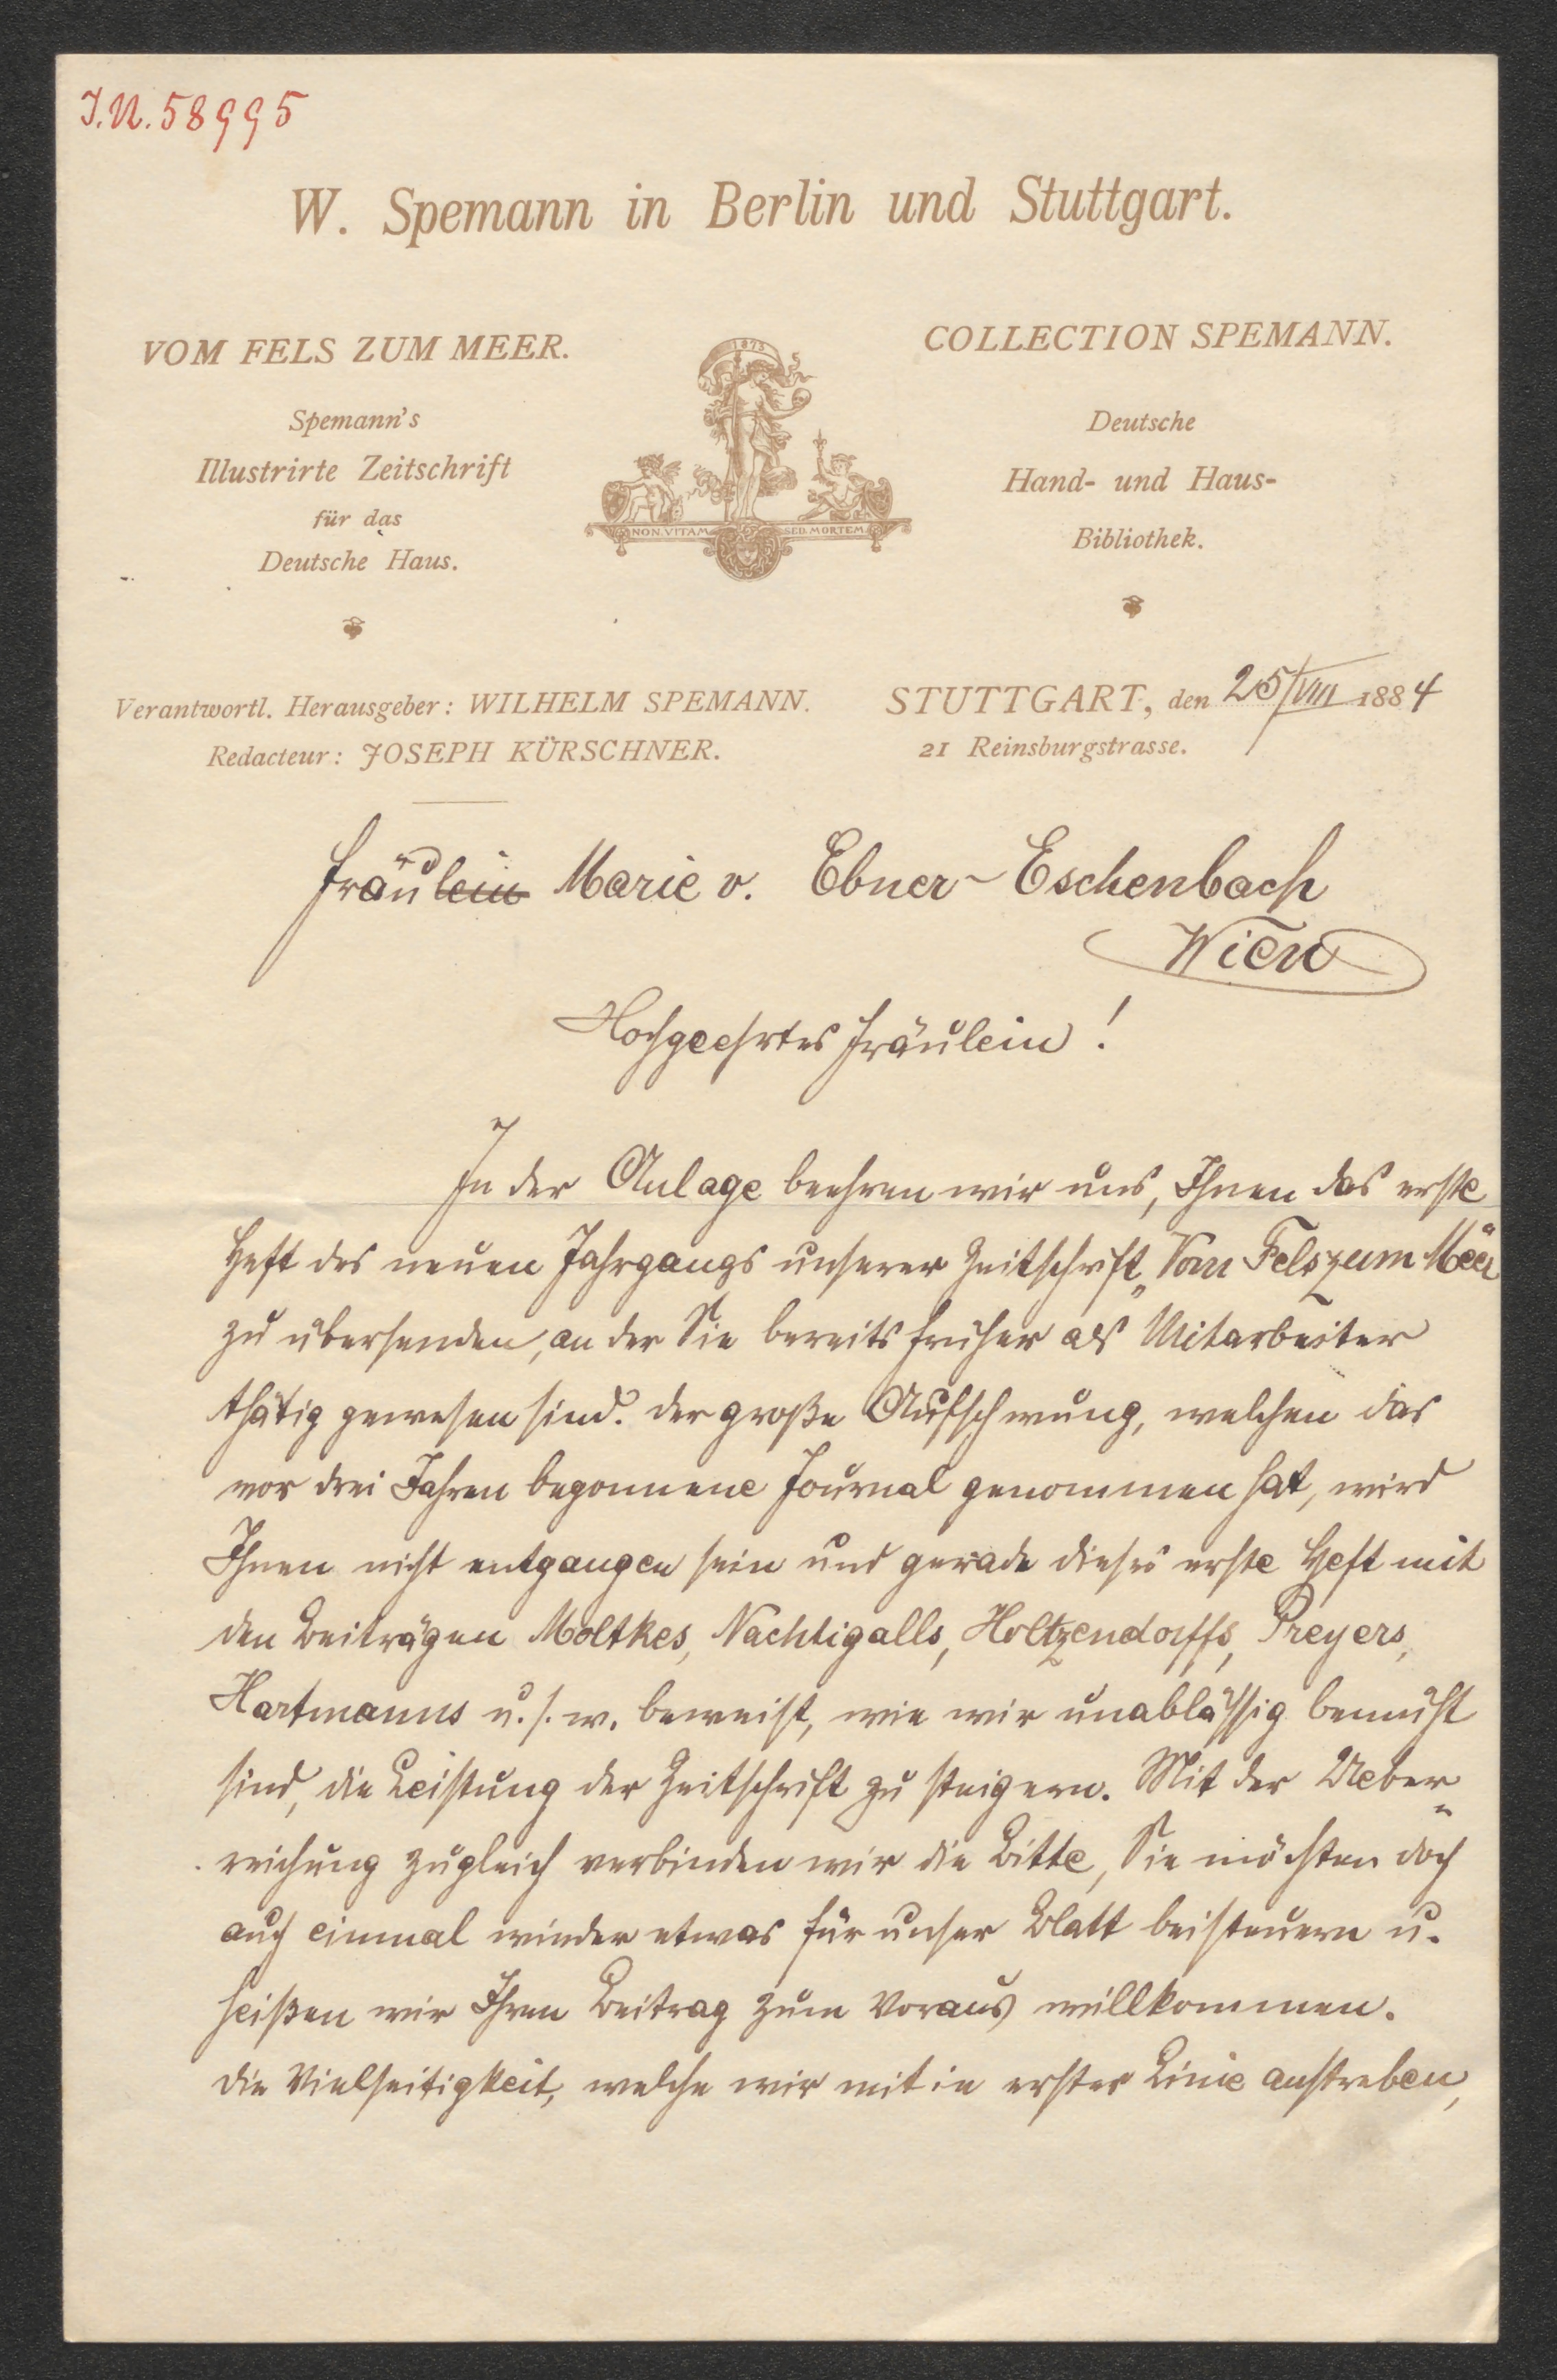 J.N. 58995
W. Spemann in Berlin und Stuttgart.
VOM FELS ZUM MEER.
Spemann's
Illustrirte Zeitschrift
für das
Deutsche Haus.
1873
NON VITAM SED MORTEM
COLLECTION SPEMANN.
Deutsche
Hand- und Haus-
Bibliothek.
Verantwortl. Herausgeber: WILHELM SPEMANN.
Redacteur: JOSEPH KÜRSCHNER.
STUTTGART, den 25/VIII 1884
21 Reinsburgstrasse.
Fräulein Marie v. Ebner-Eschenbach
Wien
Hochgeehrtes Fräulein!
In der Anlage beehren wir uns, Ihnen das erste
Heft des neuen Jahrgangs unserer Zeitschrift „Vom Fels zum Meer“
zu übersenden, an der Sie bereits früher als Mitarbeiter
thätig gewesen sind. Der große Aufschwung, welchen das
vor drei Jahren begonnene Journal genommen hat, wird
Ihnen nicht entgangen sein und gerade dieses erste Heft mit
den Beiträgen Moltkes, Nachtigalls, Holtzendorffs, Preyers,
Hartmanns u. s. w. beweist, wie wir unablässig bemüht
sind, die Leistung der Zeitschrift zu steigern. Mit der Ueber-
reichung zugleich verbinden wir die Bitte, Sie möchten doch
auch einmal wieder etwas für unser Blatt beisteuern u.
heißen wir Ihren Beitrag zum Voraus willkommen.
Die Vielseitigkeit, welche wir mit in erster Linie anstreben,